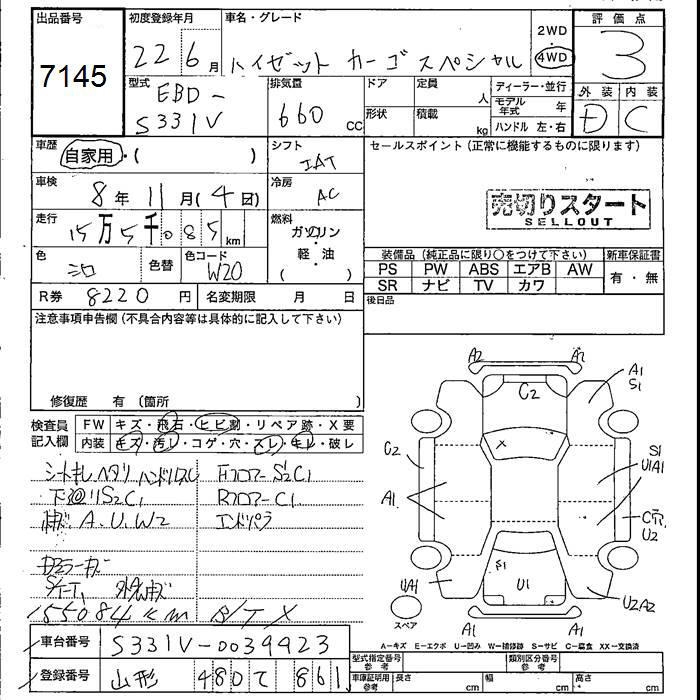 出品番号 初度登録年月 車名・グレード 評価点
7145 22 6月 ハイゼット カーゴ スペシャル 2WD 4WD 3
型式 排気量 ドア 定員 ディーラー・並行 外装 内装
EBD- S331V 660 CC 形状 積載 人 kg モデル年式 年 ハンドル 左・右 D C
車歴 自家用・( ) シフト IAT セールスポイント (正常に機能するものに限ります)
車検 8年 11月 (4 回) 冷房 AC
売切りスタート
SELLOUT
走行 15万5千085km 燃料 ガソリン・軽・油 ( )
色 シロ 色替 色コード W20
装備品 (純正品に限り○をつけて下さい) 新車保証書
PS PW ABS エアB AW 有・無
SR ナビ TV カワ
R券 8220円 名変期限 月 日 後日品
注意事項申告欄 (不具合内容等は具体的に記入して下さい)
修復歴 有 (箇所 )
検査員記入欄 FW キズ・飛石・ヒビ割・リペア跡・X要
内装 キズ・汚れ・コゲ・穴・スレ・キレ・破レ
シートキレ ヘタリ ハンドルスレ Fフロアー S2C1
下廻り S2C1 Rフロアー C1
A.U.W2
155084km
車台番号 S331V-0039423
登録番号 山形 480 て 861
A2 A2
C2
A1
S1
C2
X
S1
U1A1
A1
C穴
U2
S1
U1
U1A1
U2A2
A1 A1
スペア
A-キズ E-エクボ U-凹み W-補修跡 S-サビ C-腐食 XX-交換済
型式指定番号 参考 類別区分番号 参考
車庫証明用 参考 長さ cm 幅 cm 高さ cm